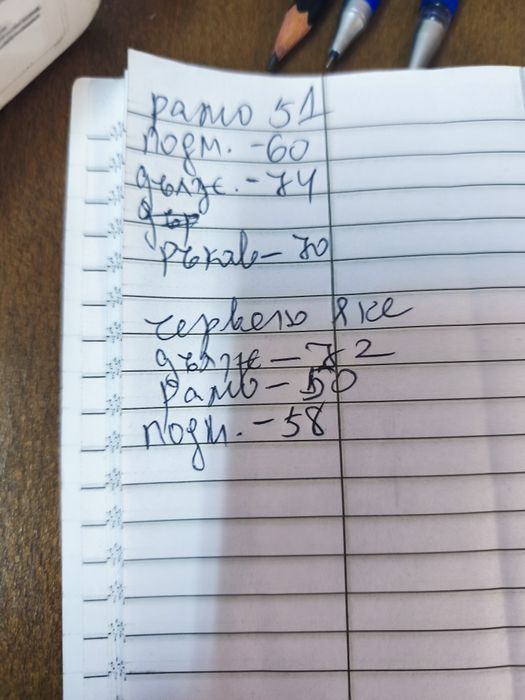 рамо 51
подм. - 60
дълж. - 74
ръкав - 70
червено яке
дълж - 72
рамо - 50
подм. - 58